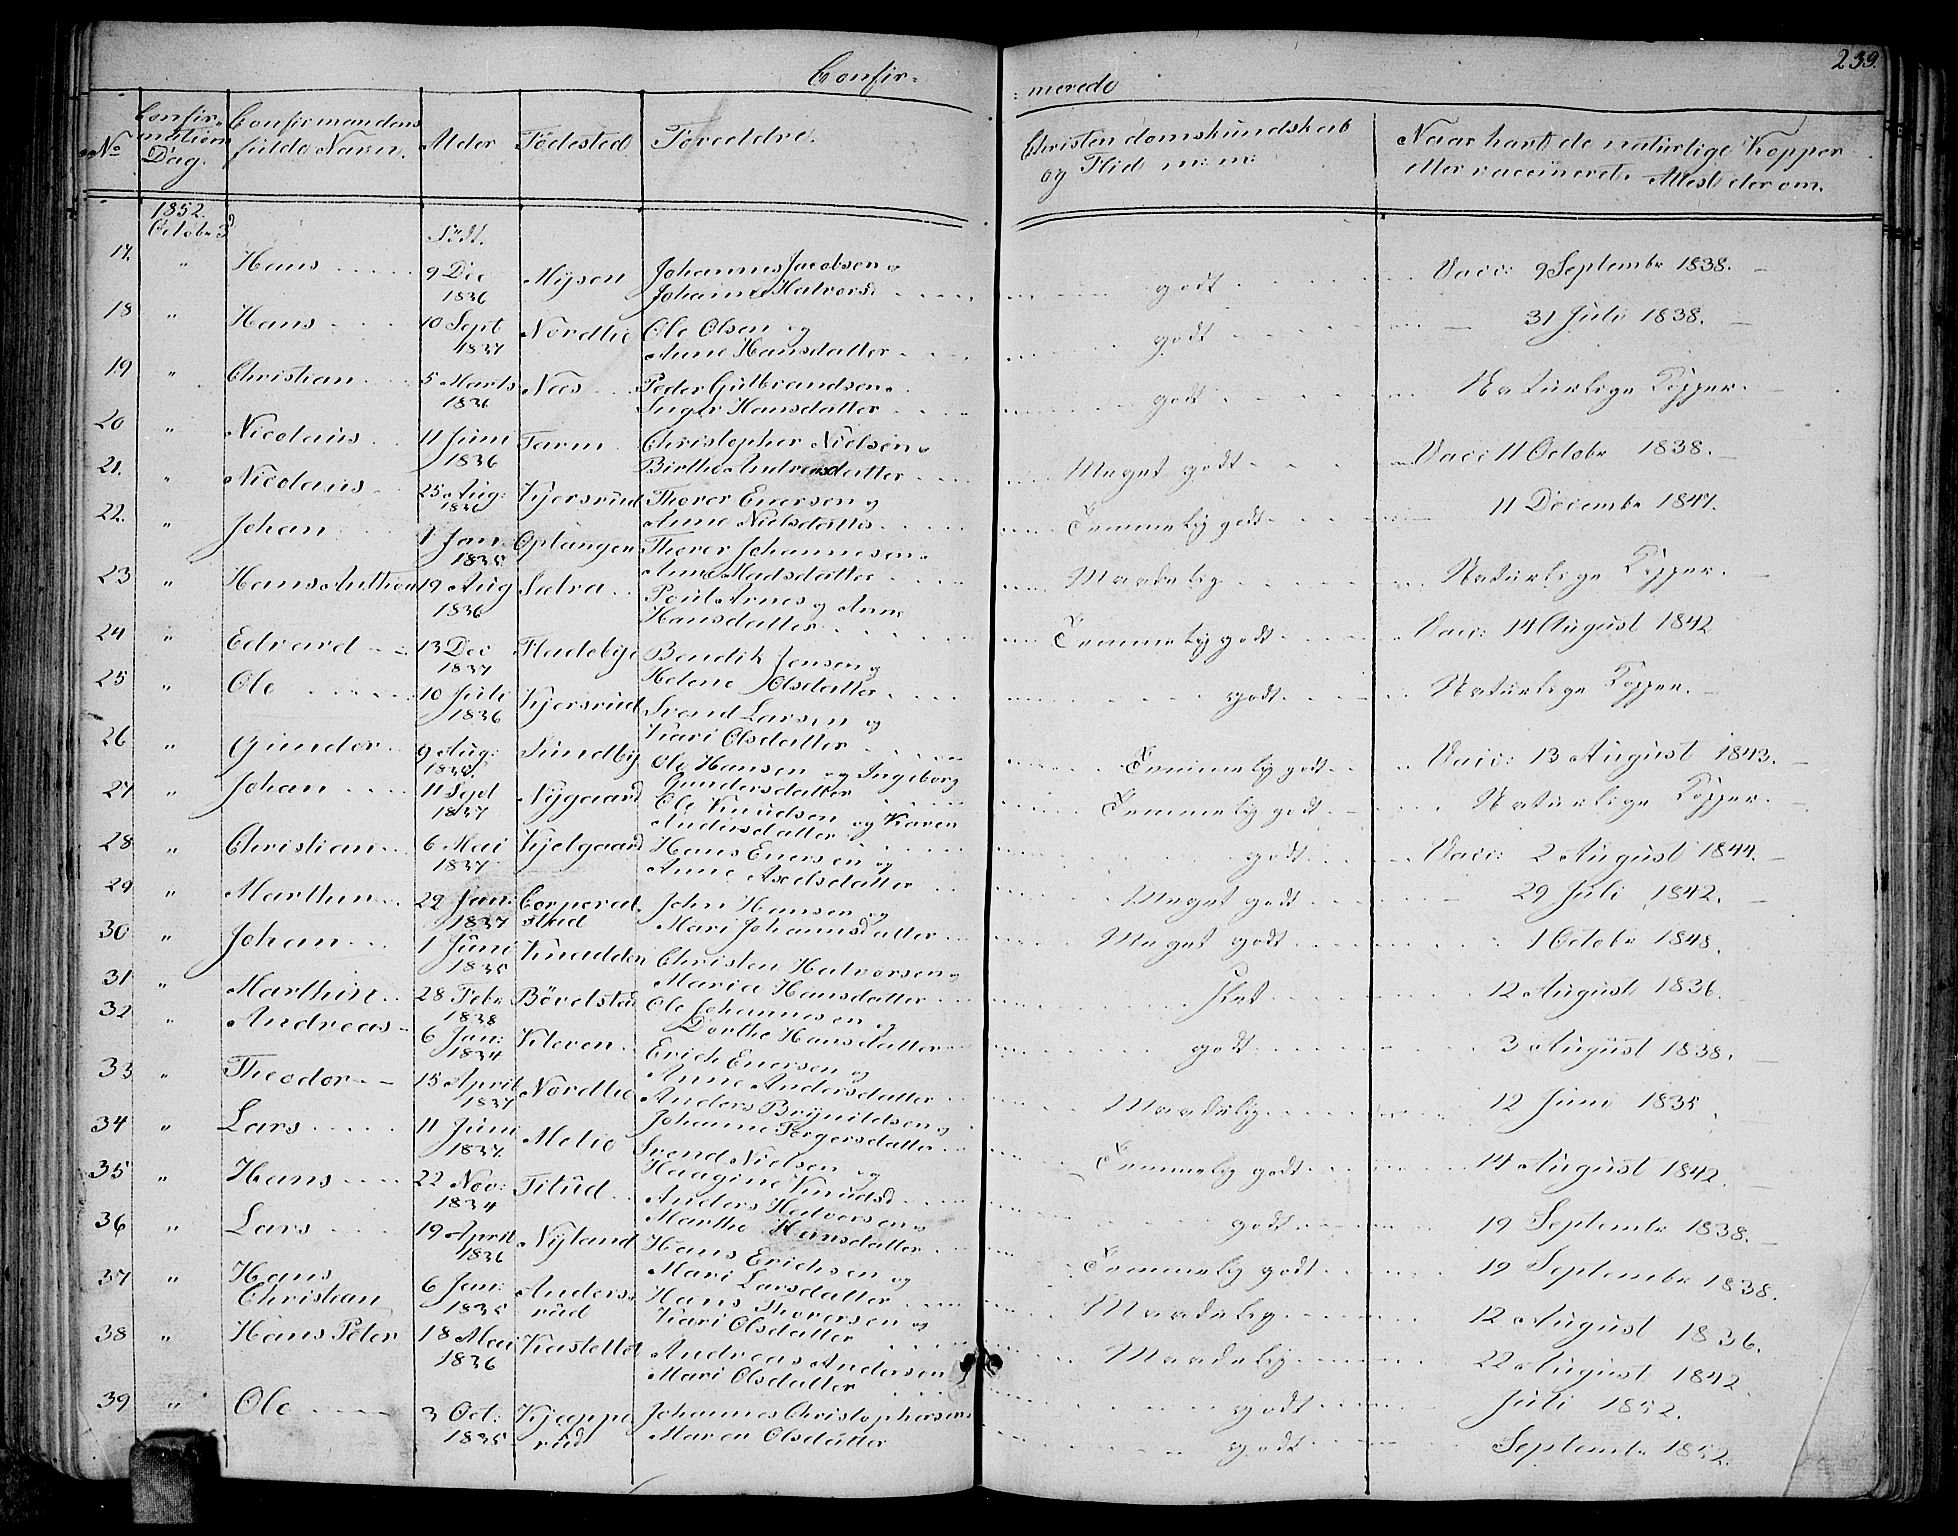 239.
Confir=
=merede
No
Confir=
mations
Dag.
Confirmandens
fulde Navn.
Alder
Födested.
Foreldre.
Christendomskundskab
og Flid m: m:
Naar havt de natúrlige Kopper
eller vaccineret. Attest derom.
1852.
Octobr 3d
Födt.
17. " Hans 9 Dec 1836 Mÿsen Johannes Jacobsen og
Johanne Halvorsd. godt Vacc: 9 Septembr 1838.
18 " Hans 10 Sept 1837 Nordlie Ole Olsen og
Anne Hansdatter godt 31 Juli 1838.
19 " Christian 5 Marts 1836 Næs Peder Gulbrandsen o
Inger Hansdatter godt Naturlige Kopper.
20 " Nicolaus 11 Juni 1836 Tarm Christopher Nielsen o
Birthe Andreasdatter Meget godt Vacc 11 Octobr 1838.
21. " Nicolaus 25 Aug: 1836 Kjersrud Thorer Enersen og
Anne Nielsdatter Temmelig godt 11 Decembr 1847.
22. " Johan 1 Jan 1835 Optangen Thorer Johannesen o
Anne Madsdatter Maadelig Naturlige Kopper.
23 " Hans Anthon 19 Aug 1836 Sætra Poul Arnes og Anne
Hansdatter Temmelig godt Vacc: 14 August 1842
24 " Edvard 13 Dec 1837 Fladebye Bendik Jensen og
Helene Olsdatter godt Naturlige Kopper.
25 " Ole 10 Juli 1836 Kjersrud Svend Larsen og
Kari Olsdatter Temmelig godt Vacc: 13 August 1843.
26 " Gunder 9 Aug: Sundby Ole Hansen og Ingeborg
Gundersdatter Temmelig godt Naturlige Kopper.
27 " Johan 11 Sept 1837 Nygaard Ole Knudsen og Karen
Andersdatter godt Vacc: 2 August 1844.
28 " Christian 6 Mai 1837 Kjelgaard Hans Enersen og
Anne Axelsdatter Meget godt 29 Juli 1842.
29 " Marthin 29 Jan: 1837 Corporal=
stad John Hansen og
Mari Johannsdatter Meget godt 1 Octobr 1848.
30 " Johan 1 Juni 1835 Knadden Christen Halvorsen og
Maria Hansdatter Slet 12 August 1836.
31 " Marthin 28 Febr 1838 Bövelstad Ole Johannesen og
Dorthe Hansdatter godt 3 August 1838.
32 " Andreas 6 Jan: 1834 Kleven Erich Enersen og
Anne Andersdatter Maadelig 12 Juni 1835
33 " Theodor 15 April 1837 Nordlie Anders Brynildsen og
Johanne Torgersdatter Temmelig godt 14 August 1842.
34 " Lars 11 Juni 1837. Melie Svend Nielsen og
Haagine Knudsd godt 19 Septembr 1838.
35 " Hans 22 Nov: 1834 Filud Anders Halvorsen o
Marthe Hansdatter Temmelig godt 19 Septembr 1838.
36 " Lars 19 April 1836 Nyland Hans Erichsen og
Mari Larsdatter Maadelig 12 August 1836.
37 " Hans
Christian 6 Jan: 1835 Anders=
rud Hans Thorersen og
Kari Olsdatter Maadelig 22 August 1842.
38 " Hans Peter 18 Mai 1836 Kastellet Andreas Andersen og
Mari Olsdatter godt Juli 1852.
39 " Ole 3 Oct: 1835 Kjeppe
rud Johannes Christophersen
Maren Olsdatter godt Septembr 1852.